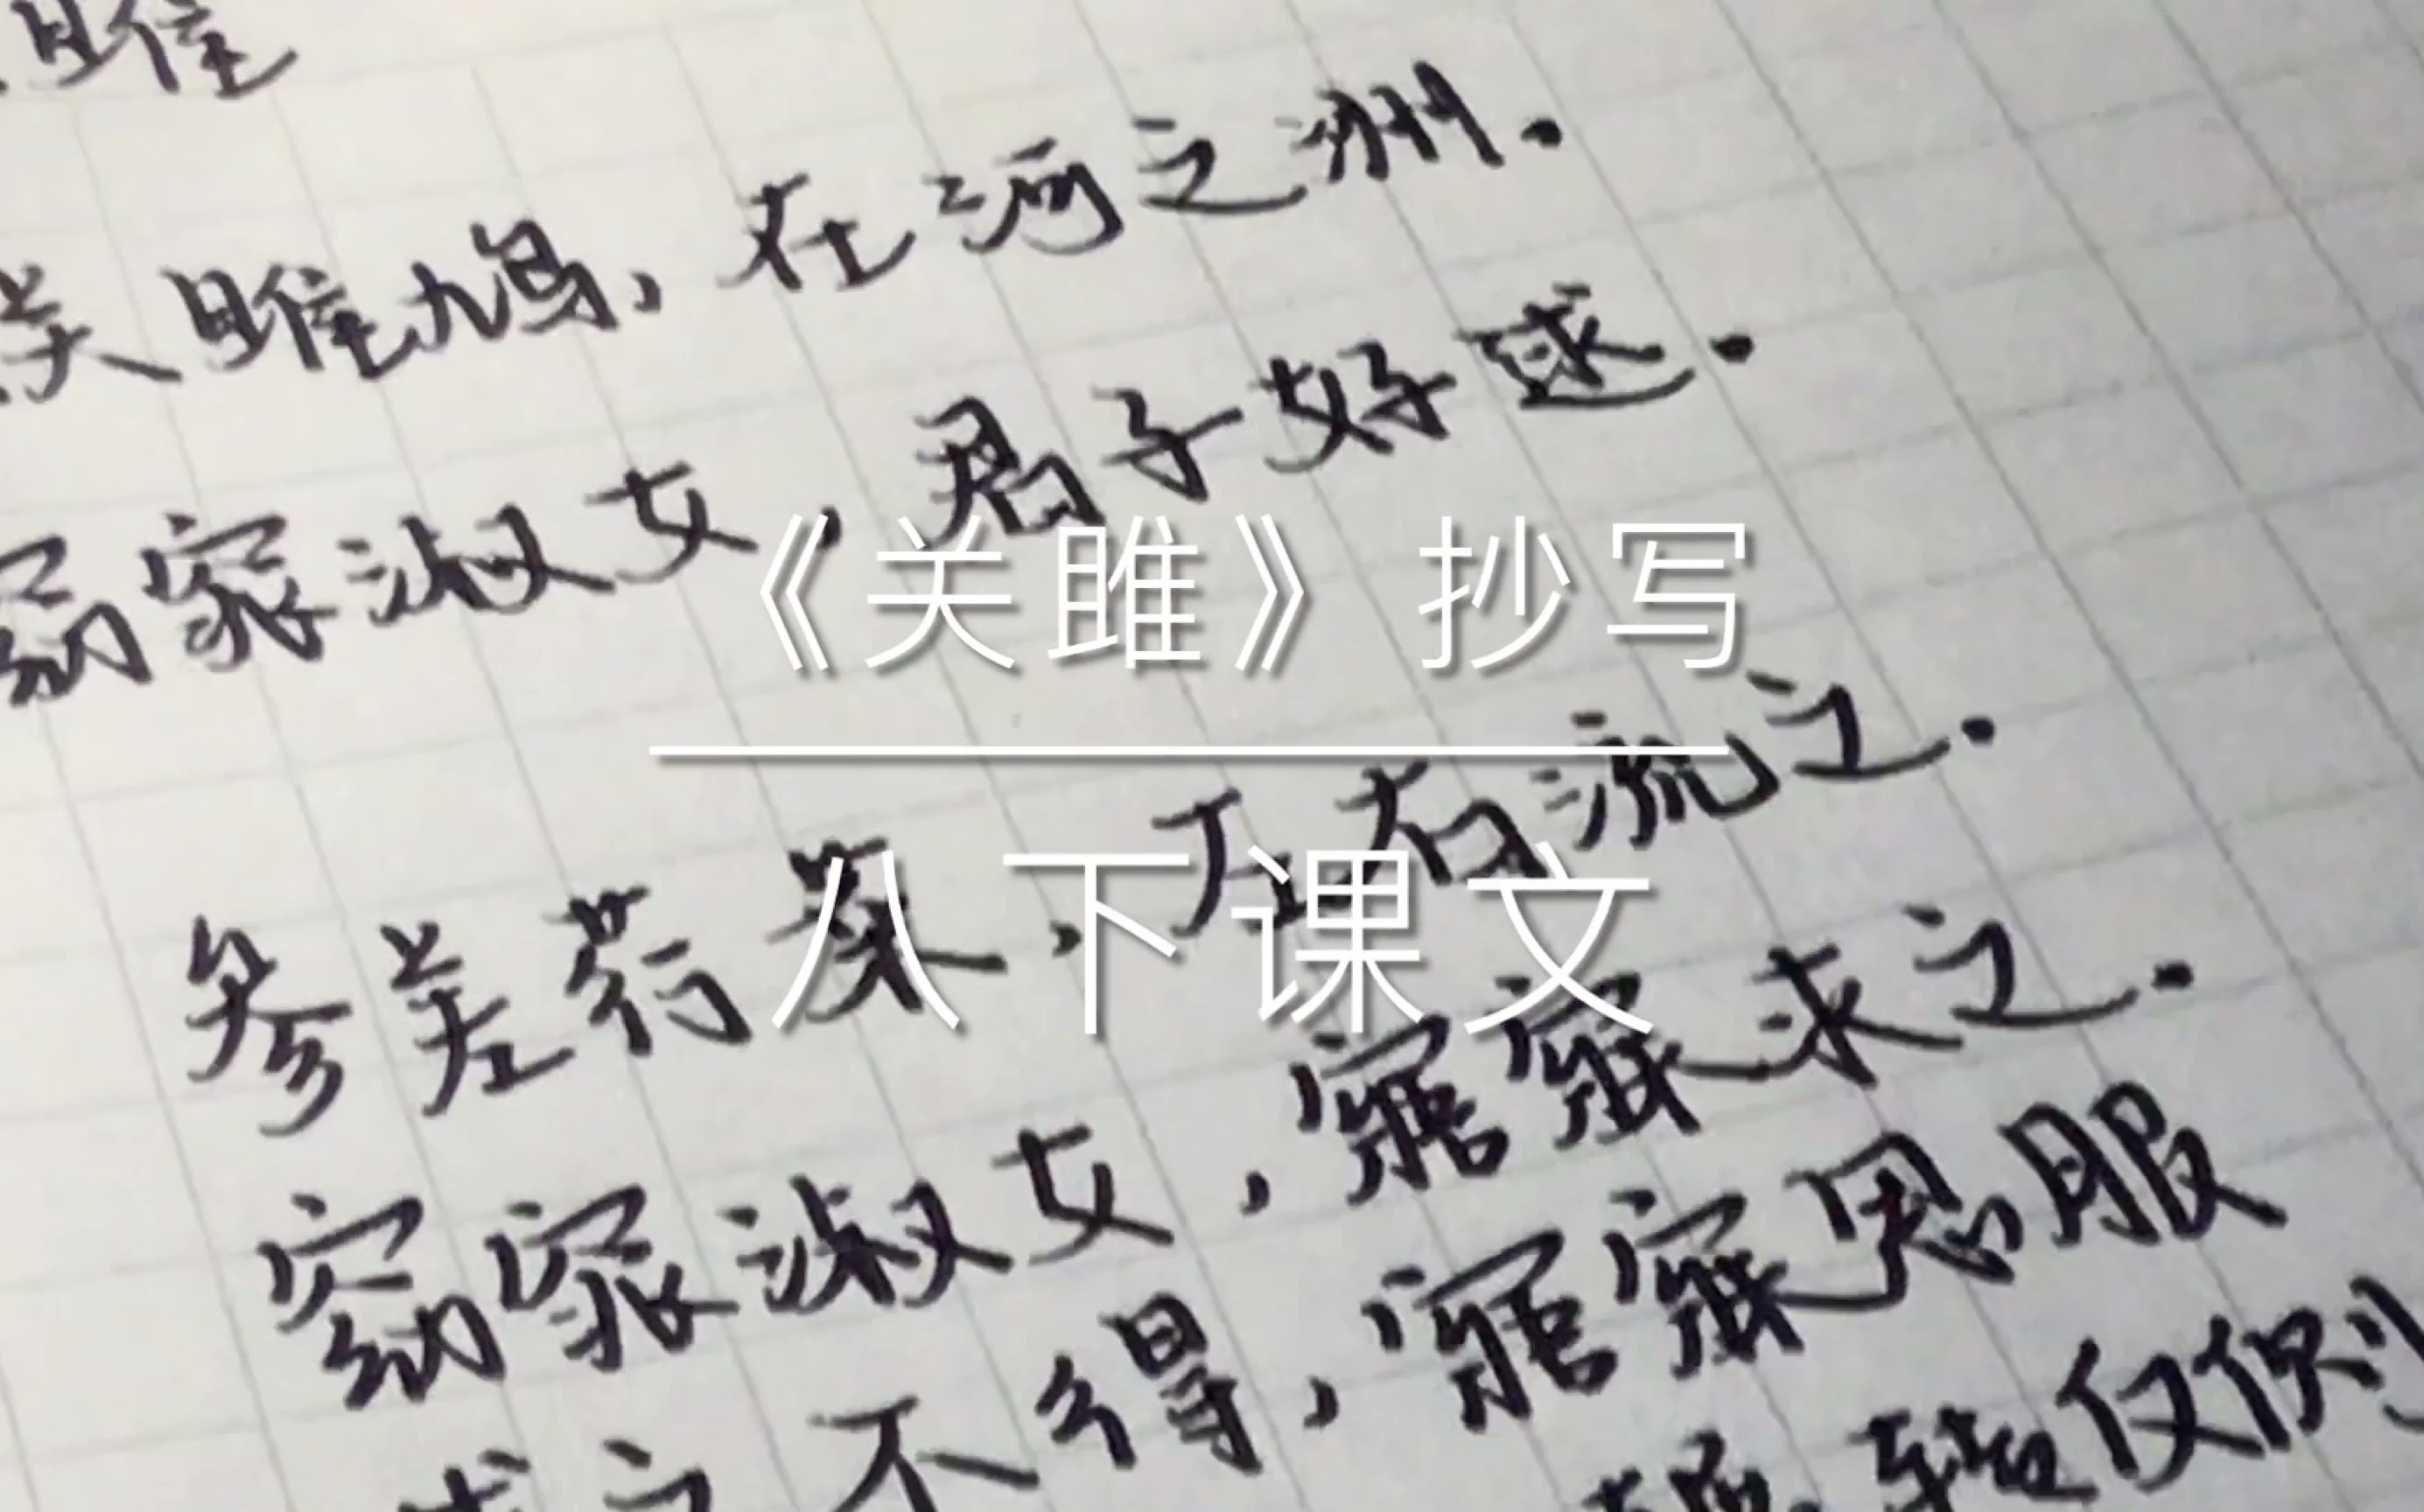 雎
关雎鸠,在河之洲.
窈窕淑女,君子好逑.
《关雎》抄写
八下课文
参差荇菜,左右流之.
窈窕淑女,寤寐求之.
求之不得,寤寐思服